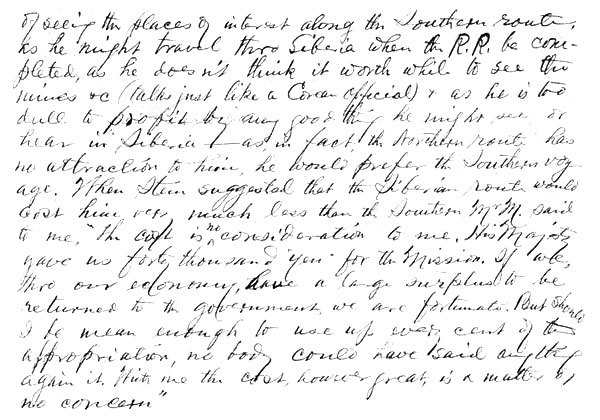 of seeing the places of interest along the Southern route,
as he might travel thro Siberia when the R.R. be com-
pleted, as he doesn't think it worth while to see the
mines &c (talks just like a Corean official) & as he is too
dull to profit by any good thing he might see or
hear in Siberia & as in fact the Northern route has
no attraction to him, he would prefer the Southern voy-
age. When Stein suggested that the Siberian route would
cost him very much less than the Southern Mr M. said
to me, "The cost is no consideration to me. His Majesty
gave us forty thousand yen for the Mission. If we,
thro our economy, have a large surplus to be
returned to the government, we are fortunate. But should
I be mean enough to use up every cent of the
appropriation, no body could have said anything
again it. With me the cost, however great, is a matter of
no concern"